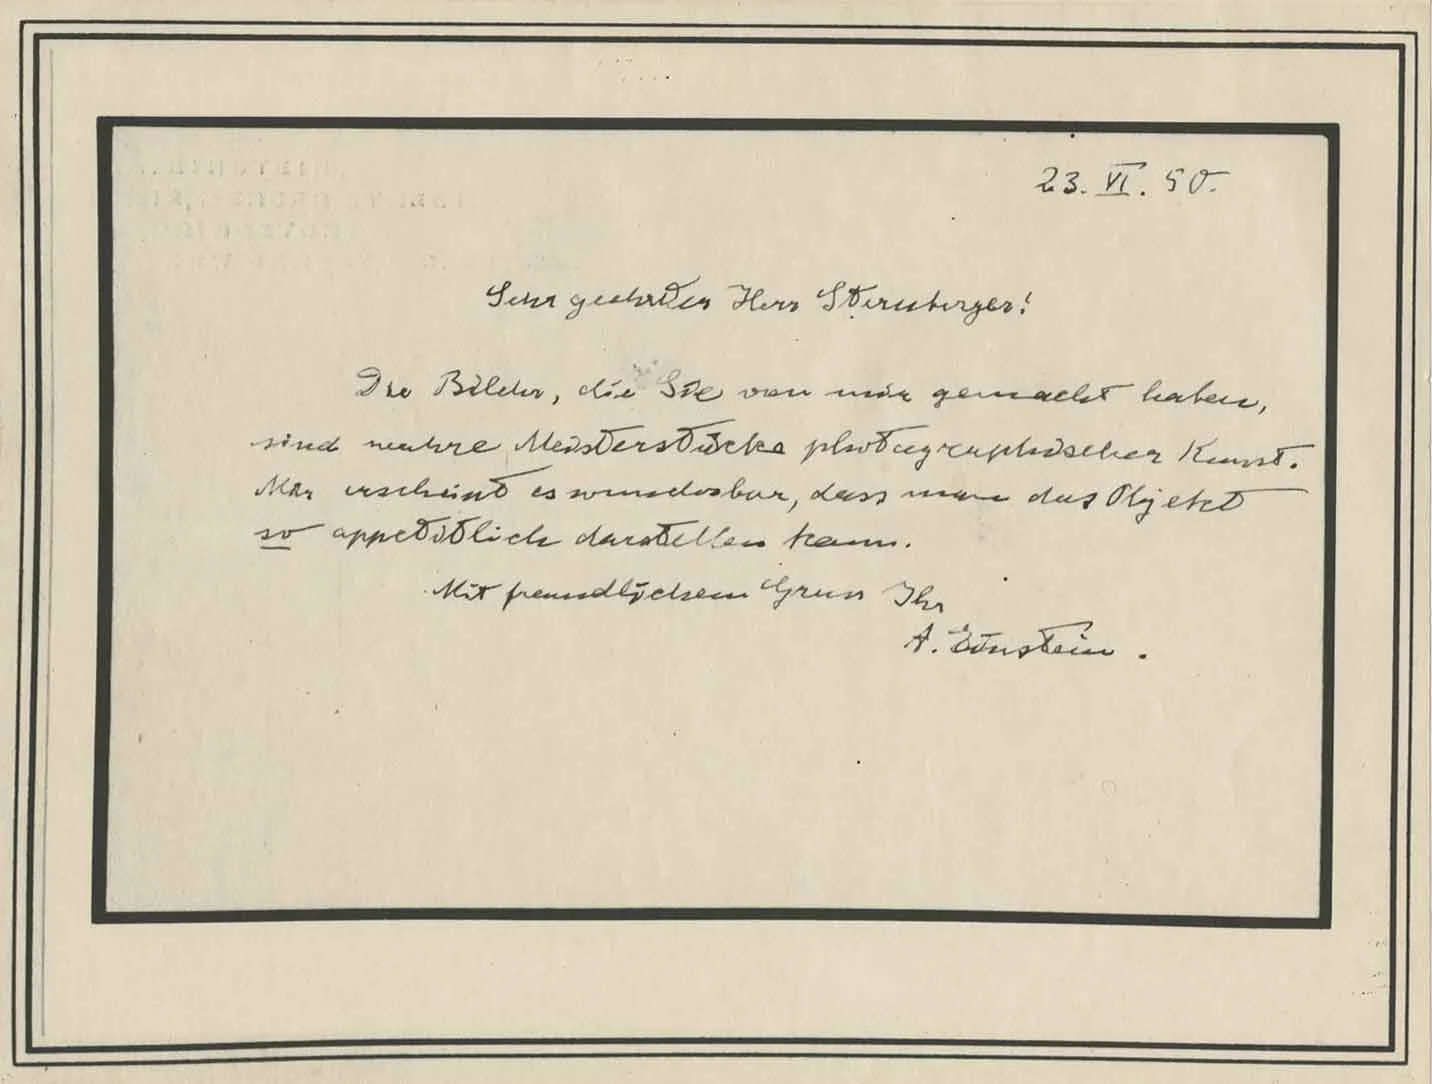 23. VI. 50.
Sehr geehrter Herr Sternberger!
Die Bilder, die Sie von mir gemacht haben,
sind wahre Meisterstücke photographischer Kunst.
Mir erscheint es wunderbar, dass man das Objekt
so appetitlich darstellen kann.
Mit freundlichem Gruss Ihr
A. Einstein.